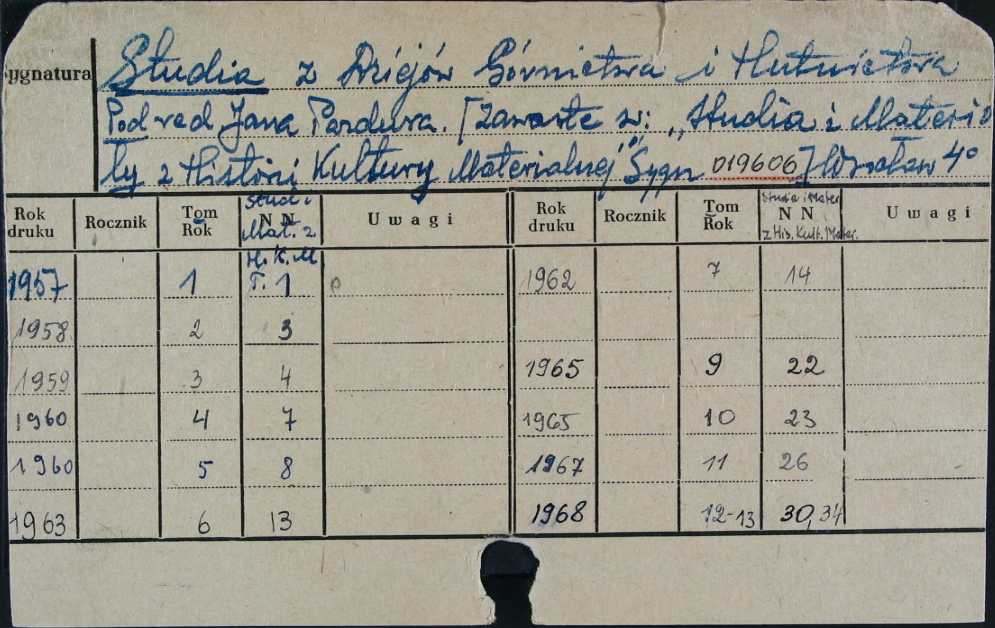 Sygnatura
Studia z Dziejów Górnictwa i Hutnictwa
Pod red Jana Pazdura. [Zawarte w: „Studia i Materia
ły z Historii Kultury Materialnej" Sygn 019606] Wrocław 4°
Rok druku | Rocznik | Tom Rok | Stud. i N N Mat. z H. K. M | Uwagi | Rok druku | Rocznik | Tom Rok | Studia i Mater N N z His. Kult. Mater. | Uwagi
1957 | 1 | T. 1 | 1962 | 7 | 14
1958 | 2 | 3
1959 | 3 | 4 | 1965 | 9 | 22
1960 | 4 | 7 | 1965 | 10 | 23
1960 | 5 | 8 | 1967 | 11 | 26
1963 | 6 | 13 | 1968 | 12-13 | 30, 34